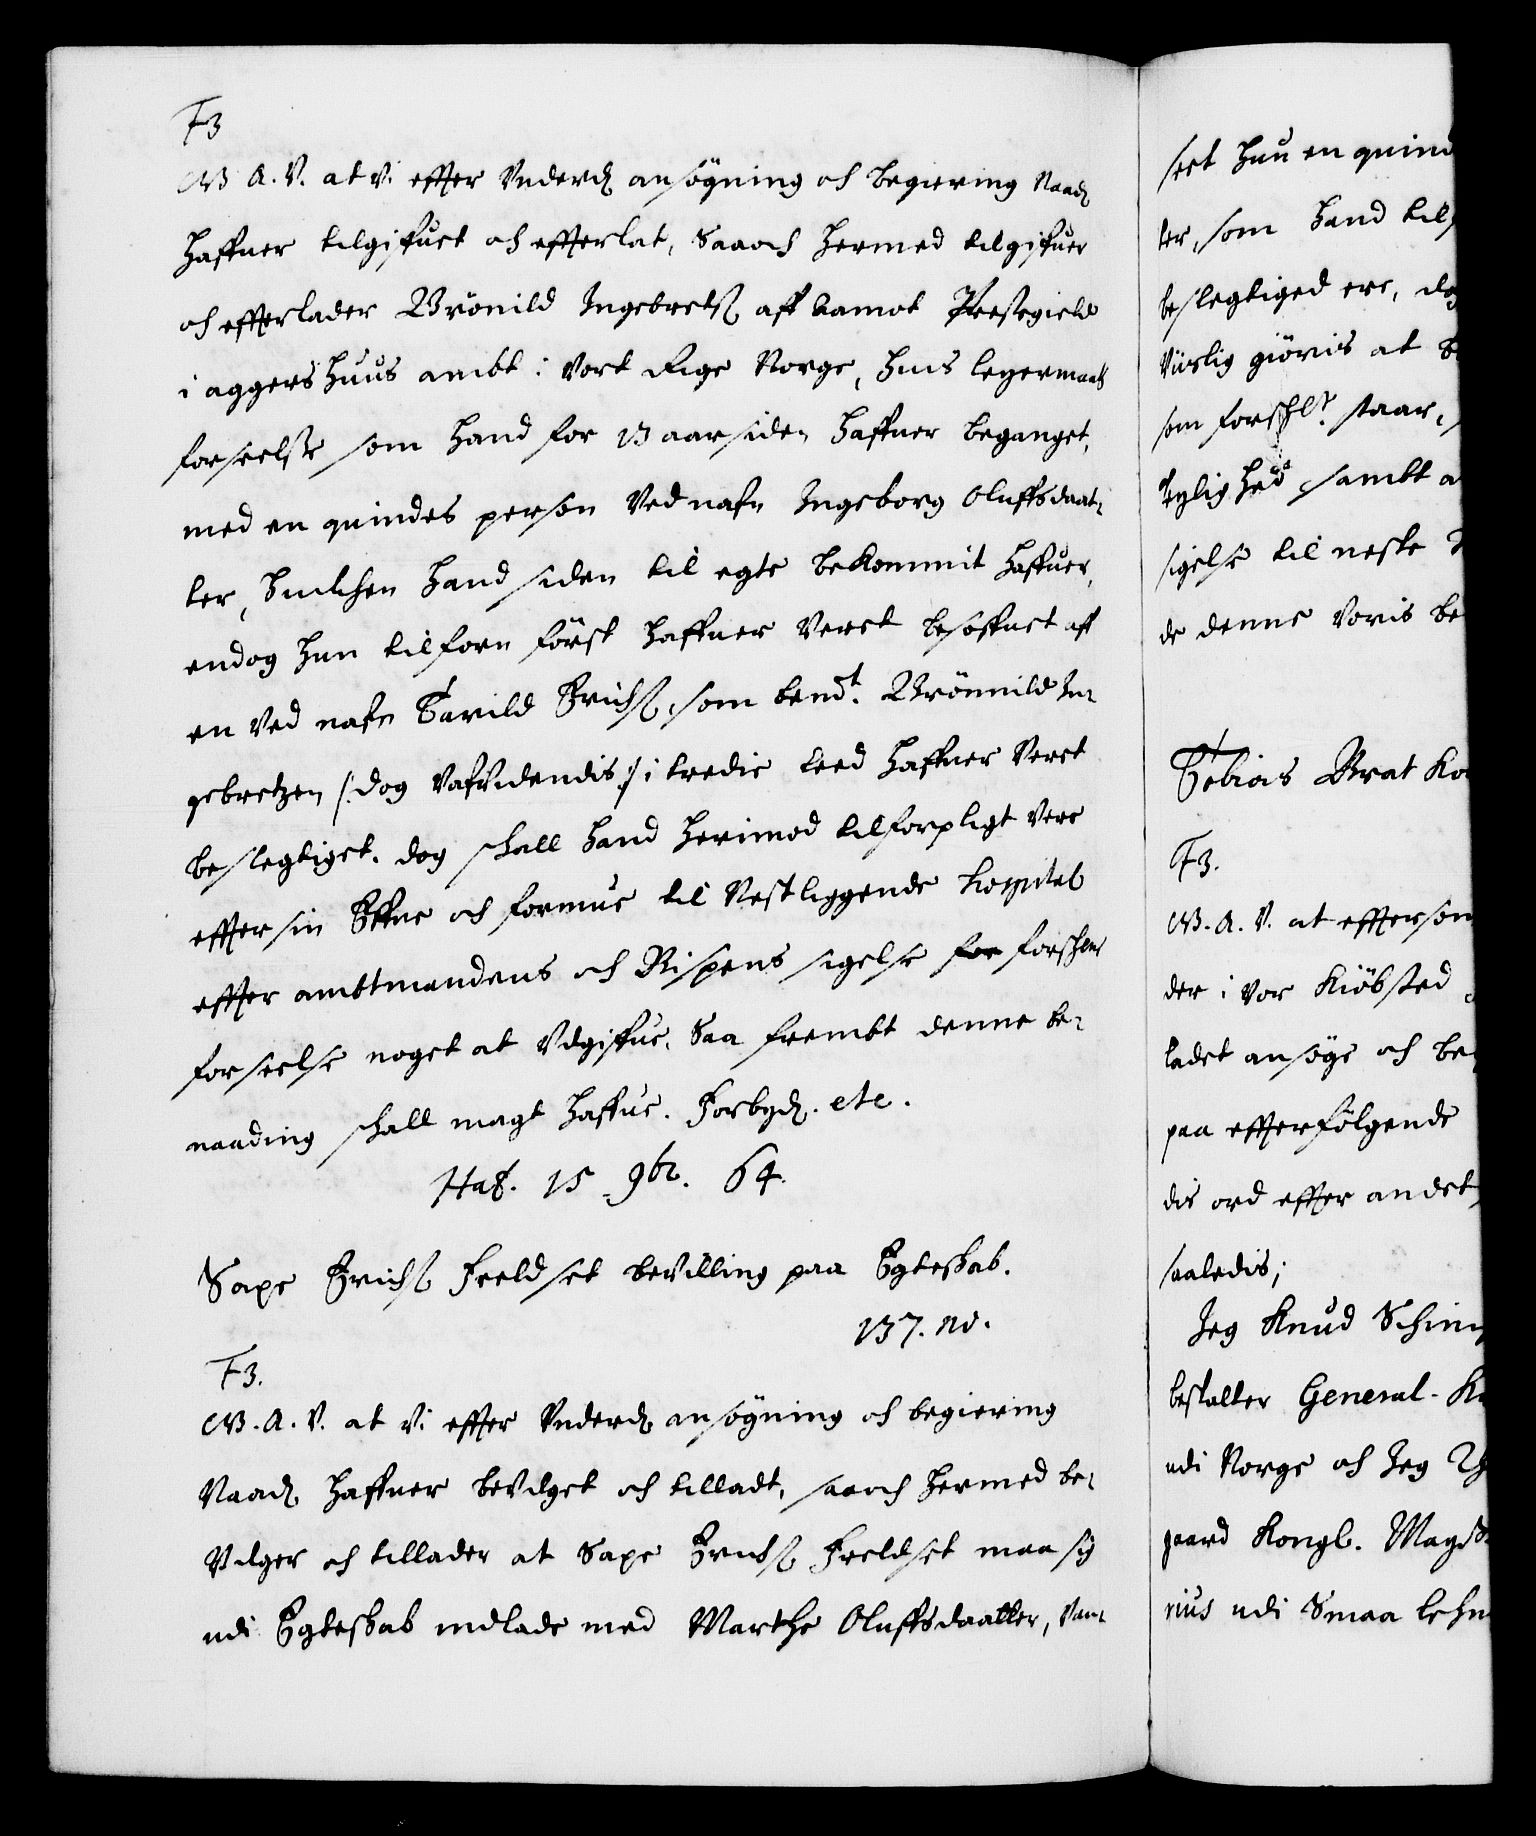 F3
G. A. V. at Vi effter Underd. ansögning och begiering Naad.
haffuer tilgiffuet och effterlat, Saaoch hermed tilgiffuer
och effterlader Brönild Ingebrets. aff Aamot Prestegield
i aggershuus ambt i Vort Rige Norge, hans legermaals
forseelse som hand for 13 aar siden haffuer beganget,
med en quindes person Ved nafn Ingeborg Oluffsdaat-
ter, huilchen hand siden til egte bekommit haffuer,
endog hun tilforn först haffuer Veret besoffuet aff
en Ved nafn Tarild Erichs. som bemt. Brönnild In-
gebretzen /: dog Vafvidendis :/ i tredie leed haffuer Veret
beslegtiget. dog schall hand herimod tilforpligt Vere
effter sin Effne och formue til Nestliggende hospital
effter ambtmandens och Bispens sigelse for forschreffne
forseelse noget at Udgiffue. Saa frembt denne be-
naading schall magt haffue. Forbyd. etc.
Haf. 15 9br. 64.
Saxe Erichs. Freldset beVilling paa Egteskab.
137. no.
F3.
G. A. V. at Vi effter Underd. ansögning och begiering
Naad. haffuer beVilget och tilladt, saaoch hermed be-
Vilger och tillader at Saxe Erichs. Freldset maa sig
udi Egteskab indlade med Marthe Oluffsdaatter, Uan-
seet hun en quind
ter, som hand til
beslegtiged ere, dog
Virlig giöris at
som forschr. staar,
leylighed sambt a
sigelse til neste
de denne Voris be
Tobias Brat Ko
F3.
G. A. V. at efftersom
der i Vor Kiöbsted
ladet ansöge och be
paa effterfölgende
dis ord effter andet
saaledis;
Jeg Knud Schin
bestalter General-K
udi Norge och Jeg
gaard Kongl. Mayst.
rius udi Smaa lehn